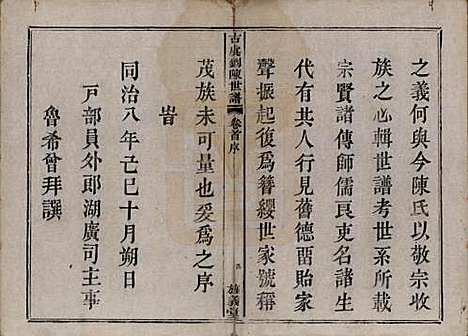 之義何與今陳氏以敬宗收
族之心輯世譜考世系所載
宗賢諸傳師儒良吏名諸生
代有其人行見舊德畱貽家
聲振起復爲簪纓世家號稱
古虞劉陳世譜 卷首序 雄義堂
茂族未可量也爰爲之序
旹
同治八年己巳十月朔日
戸部員外郎湖廣司主事
魯希曾拜譔